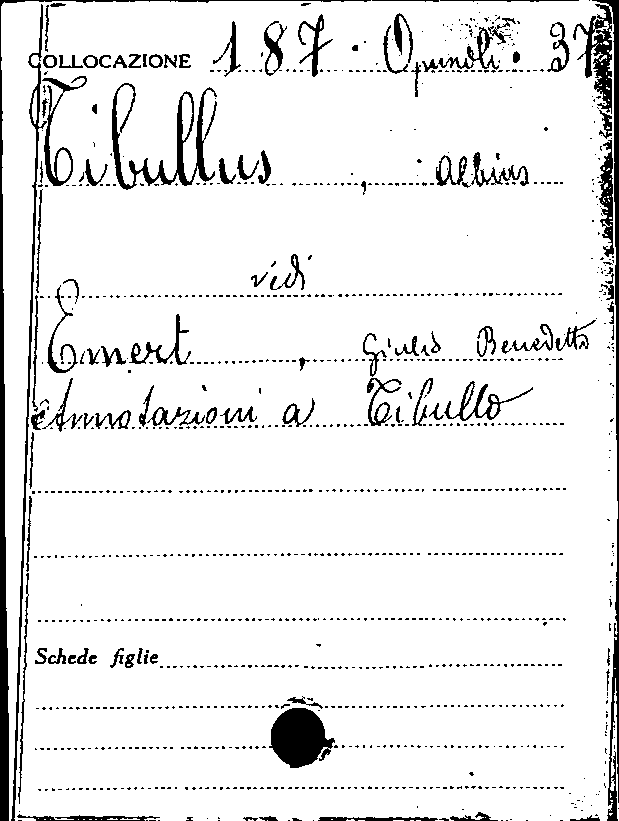 COLLOCAZIONE 187 · Opuscoli · 37
Tibullus, Albius
vidi
Emert, Giulio Benedetto
Annotazioni a Tibullo
Schede figlie